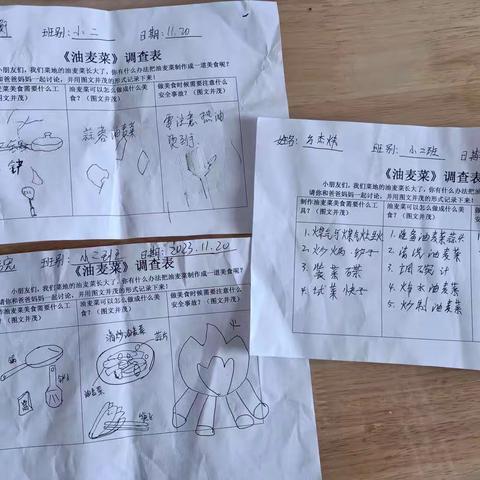 班别:小二 日期:11.20
《油麦菜》调查表
小朋友们,我们菜地的油麦菜长大了,你有什么办法把油麦菜制作成一道美食呢?
和爸爸妈妈一起讨论,并用图文并茂的形式记录下来!
麦菜美食需要什么工
(图文并茂)
油麦菜可以怎么做成什么美
食?(图文并茂)
做美食时候需要注意什么
安全事故?(图文并茂)
铲
蒜蓉油麦菜
需注意热油
班别:小二班 2023.11.20
《油麦菜》调查表
小朋友们,我们菜地的油麦菜长大了,你有什么办法把油麦菜制作成一道美食呢?
请你和爸爸妈妈一起讨论,并用图文并茂的形式记录下来!
油麦菜美食需要什么工
(图文并茂)
油麦菜可以怎么做成什么美
食?(图文并茂)
做美食时候需要注意什么
安全事故?(图文并茂)
锅
清炒油麦菜
蒜片
油麦菜
筷子
火
姓名: 班别:小二班 日期
《油麦菜》调查表
小朋友们,我们菜地的油麦菜长大了,你有什么办法
请你和爸爸妈妈一起讨论,并用图文并茂的形式记录下来!
制作油麦菜美食需要什么工
具?(图文并茂)
油麦菜可以怎么做成什么美
食?(图文并茂)
1.煤气与煤气灶
2.炒锅
3.装菜碟
4.试菜筷子
1.准备油麦菜蒜头
2.清洗油麦菜
3.调
4.焯水油麦菜
5.炒制油麦菜